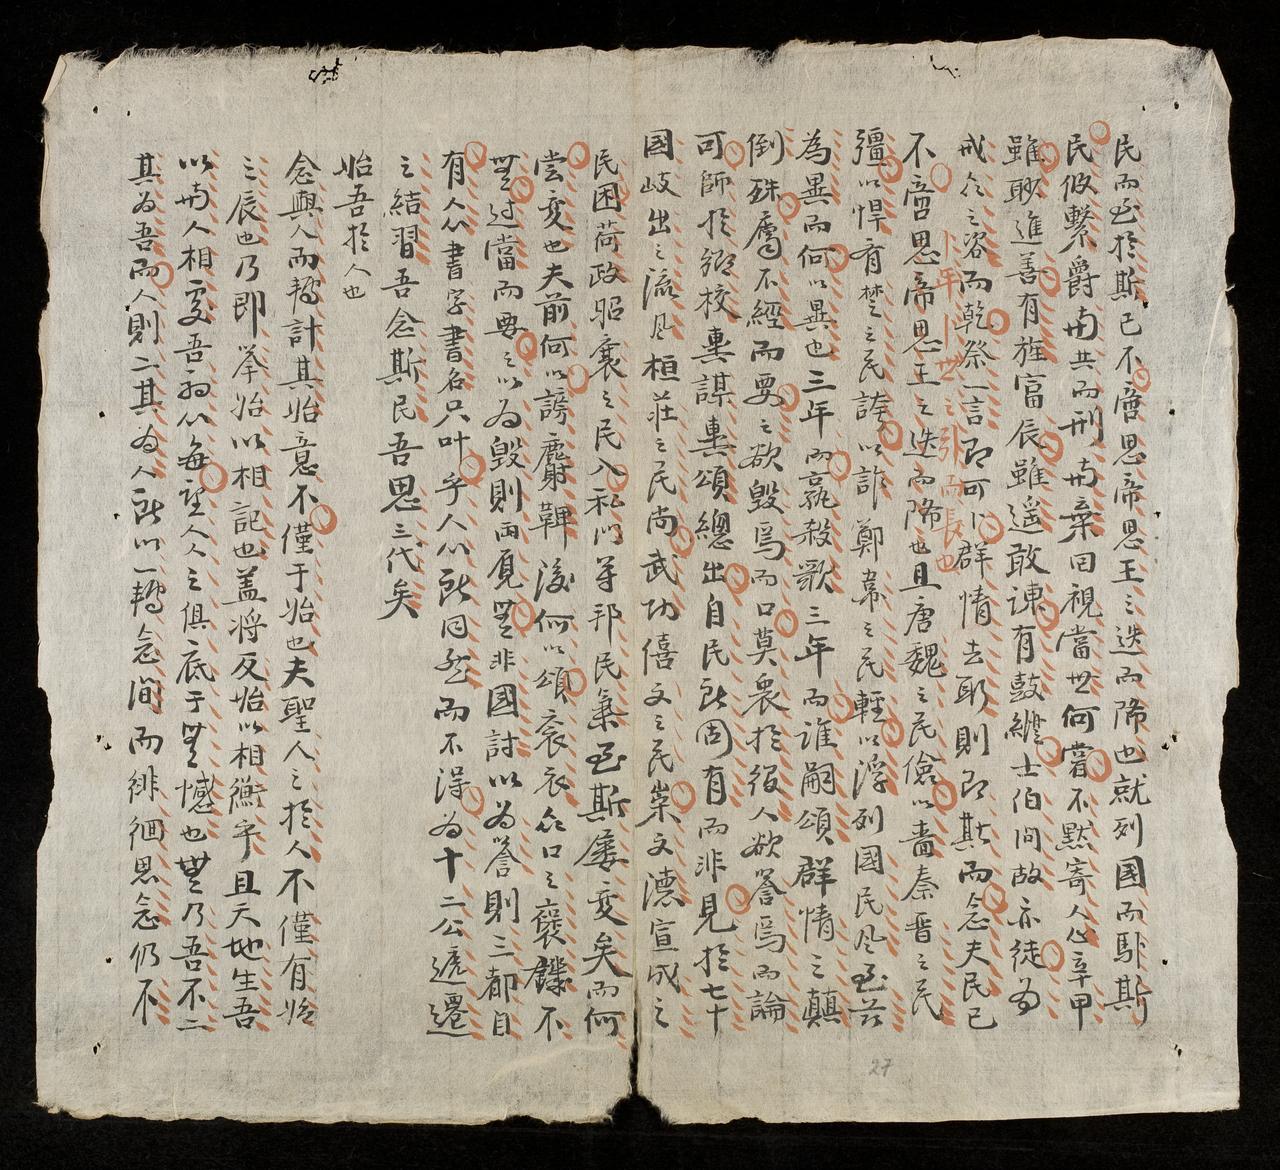 民而至於斯已不啻思帝思王之迭而降也就列國而馭斯
民攸繫爵南共而刑南棄曰視當世何嘗不黙寄人心辛甲
雖聊進善有旌富辰雖遥敢諌有鼓纏士伯問故亦徒為
戒令之咨而乾祭一言即可卜群情去取則即斯而念夫民已
卜年卜世之引而長也
不啻思帝思王之迭而降也且唐魏之民儉以嗇秦晋之民
彊以悍有楚之民誇以詐鄭韋之民輕以浮列國民風至茲
為異而何以異也三年而孰殺歌三年而誰嗣頌群情之顛
倒殊屬不經而要之欲毀焉而口莫衆於役人欲譽焉而論
可師於鄉校輿謀輿頌總出自民所固有而非見於七十
國岐出之流風桓莊之民尚武功僖文之民崇文德宣成之
民困荷政昭襄之民入私門等邦民彙至斯屢变矣而何
嘗变也夫前何以謗麛鞸後何以頌衮衣众口之褒譏不
無过當而要之以為毀則兩觀無非國討以為譽則三都自
有人心書字書名只叶乎人心所同然而不得为十二公遞遷
之結習吾念斯民吾思三代矣
始吾於人也
念與人而轉計其始意不僅于始也夫聖人之於人不僅有始
之辰也乃即挙始以相記也盖将反始以相衡乎且天地生吾
以南人相處吾初以每望人人之俱底于無憾也無乃吾不二
其为吾而人則二其为人所以一轉念间而徘徊思念仍不